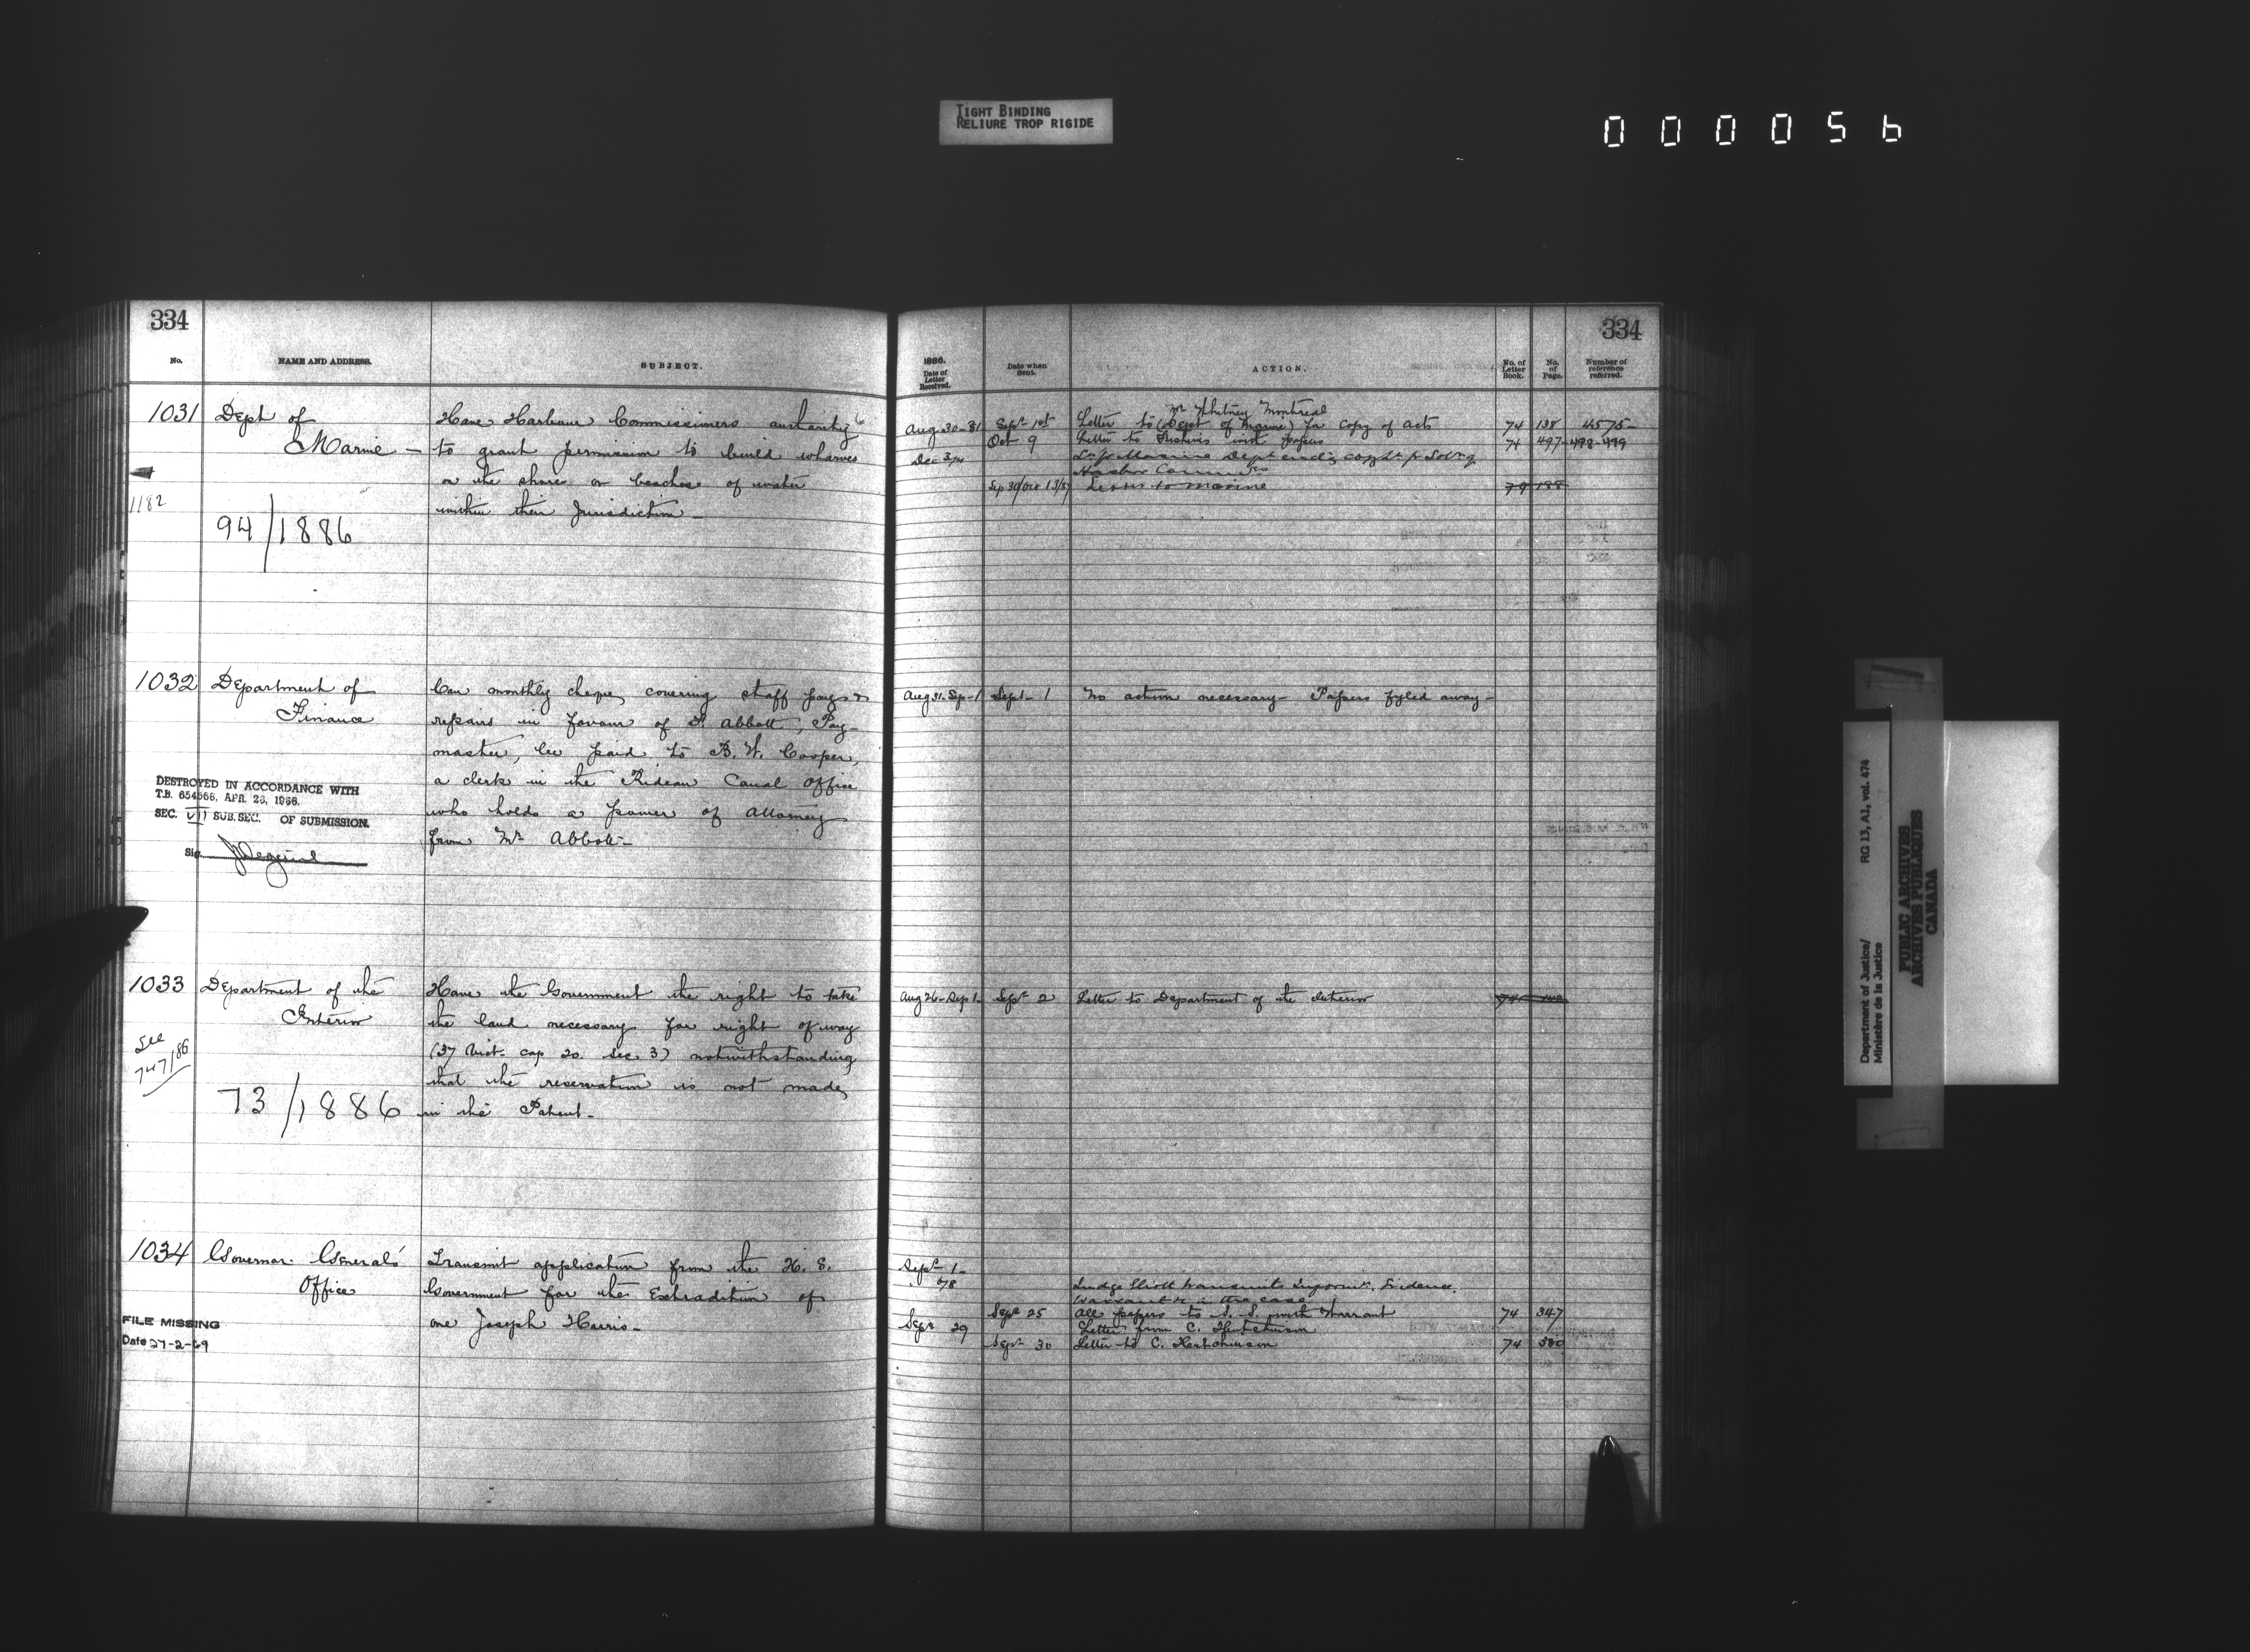 TIGHT BINDING
RELIURE TROP RIGIDE
0000056
334
No.
NAME AND ADDRESS.
SUBJECT.
1031
Dept of
Marine —
1182
94/1886
Have Harbour Commissioners authority
to grant permission to build wharves
on the shore or beaches of water
within their Jurisdiction —
1032
Department of
Finance
DESTROYED IN ACCORDANCE WITH
T.B. 654568, APR. 26, 1966.
SEC. VII SUB. SEC. OF SUBMISSION.
Sig.
Can monthly cheque, covering staff pay &
repairs in favour of F. Abbott, Pay-
master, be paid to B. W. Cooper,
a clerk in the Rideau Canal Office
who holds a power of Attorney
from Mr Abbott —
1033
Department of the
Interior
See
747/86
73/1886
Have the Government the right to take
the land necessary for right of way
(37 Vict. cap 20 sec 3) notwithstanding
that the reservation is not made
in the Patent —
1034
Governor General's
Office
FILE MISSING
Date 27-2-69
Transmit application from the U. S.
Government for the Extradition of
one Joseph Harris —
334
1886.
Date of
Letter
Received.
Date when
Sent.
ACTION.
No. of
Letter
Book.
No.
of
Page.
Number of
reference
referred.
Mr Whitney Montreal
Aug 30-31 Sept 1st Letter to (Dept of Marine) for copy of acts 74 138 4575
Oct 9 Letter to with papers 74 497-498-499
Dec 3/4 Marine Dept
Harbor
Sep 30/Oct 13/87 Letter to Marine 79 188
Aug 31-Sep-1 Sept- 1 No action necessary — Papers fyled away —
Aug 26-Sep 1 Sept 2 Letter to Department of the Interior 74 142
Sept 1 —
Judge Elliott transmits Evidence
Warrant in the case
Sept 25 All papers to S. S. with Warrant 74 347
Sept 29 Letter from C. Hutchinson
Sept 30 Letter to C. Hutchinson 74 380
Department of Justice/
Ministère de la Justice
RG 13, A1, vol. 474
PUBLIC ARCHIVES
ARCHIVES PUBLIQUES
CANADA